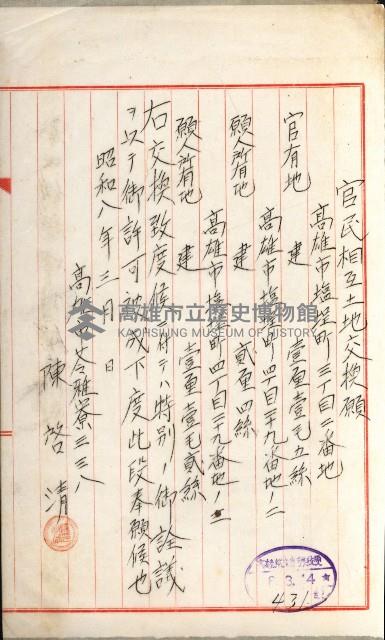 官民相互土地交換願
高雄市塩埕町三丁目二番地
官有地
建 壹厘壹毛五絲
高雄市塩埕町四丁目三十九番地ノ二
願人所有地
建 貳厘四絲
高雄市塩埕町四丁目三十九番地ノ三
願人所有地
建 壹厘壹毛貳絲
右交換致度候ニ付テハ特別ノ御詮議
ヲ以テ御許可被成下度此段奉願候也
昭和八年三月 日
高雄市苓雅寮三三八
陳啓清
8.3.14
431
高雄市立歷史博物館
KAOHSIUNG MUSEUM OF HISTORY